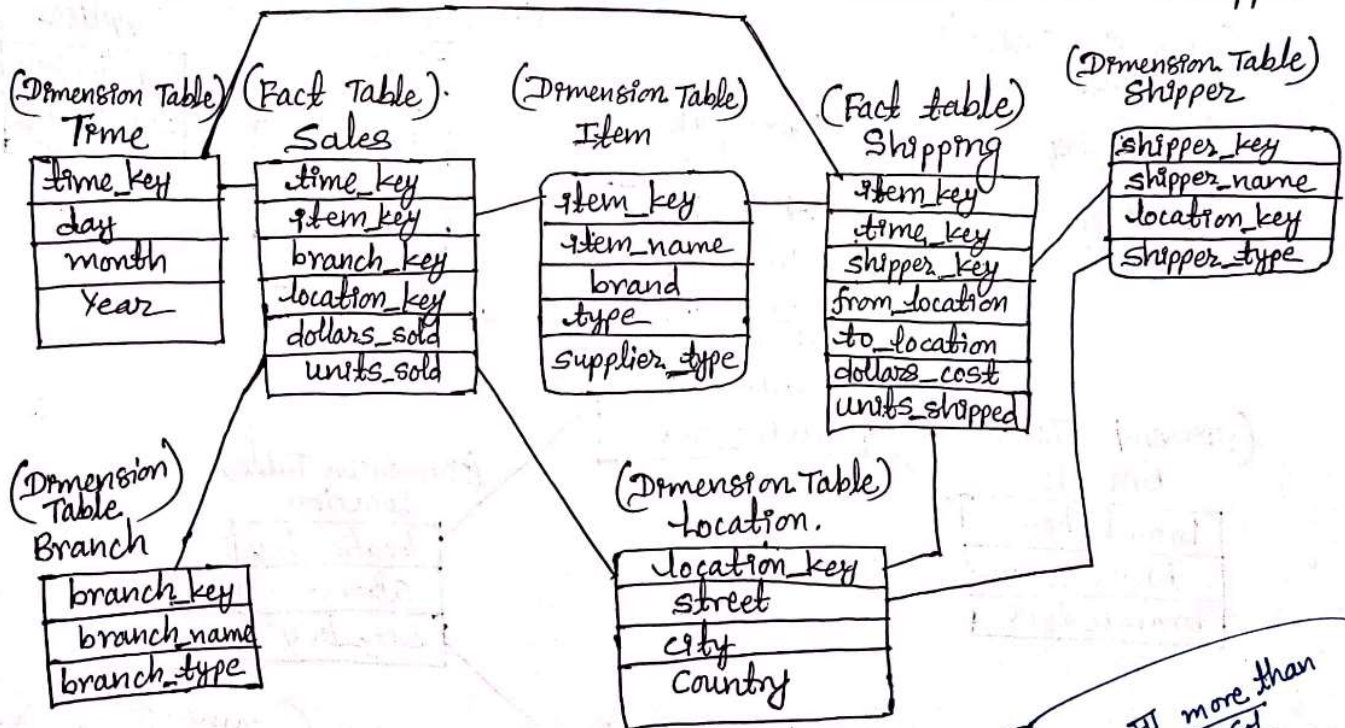 (Dimension Table)
Time
time_key
day
month
Year
(Fact Table).
Sales
time_key
item_key
branch_key
location_key
dollars_sold
units_sold
(Dimension Table)
Item
item_key
item_name
brand
type
supplier_type
(Fact table)
Shipping
item_key
time_key
shipper_key
from_location
to_location
dollars_cost
units_shipped
(Dimension Table)
Shipper
shipper_key
shipper_name
location_key
shipper_type
(Dimension
Table)
Branch
branch_key
branch_name
branch_type
(Dimension Table)
Location.
location_key
street
city
Country
more than